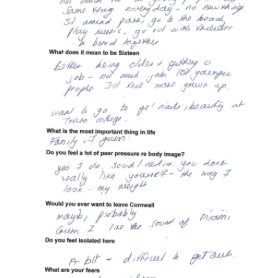 same thing everyday - no new thing
Sit around park, go to the beach
Play music, go out with
bored together
What does it mean to be Sixteen
Better being older + getting a
job - not much jobs for younger
people. I'll feel more grown up.
want to go to get nails, beauty at
Truro College.
What is the most important thing in life
Family, I guess
Do you feel a lot of peer pressure re body image?
yes I do, Social media. you dont
really like yourself - the way I
look - my weight
Would you ever want to leave Cornwall
maybe, probably
I like the sound of Miami
Do you feel isolated here
A bit - difficult to get out.
What are your fears